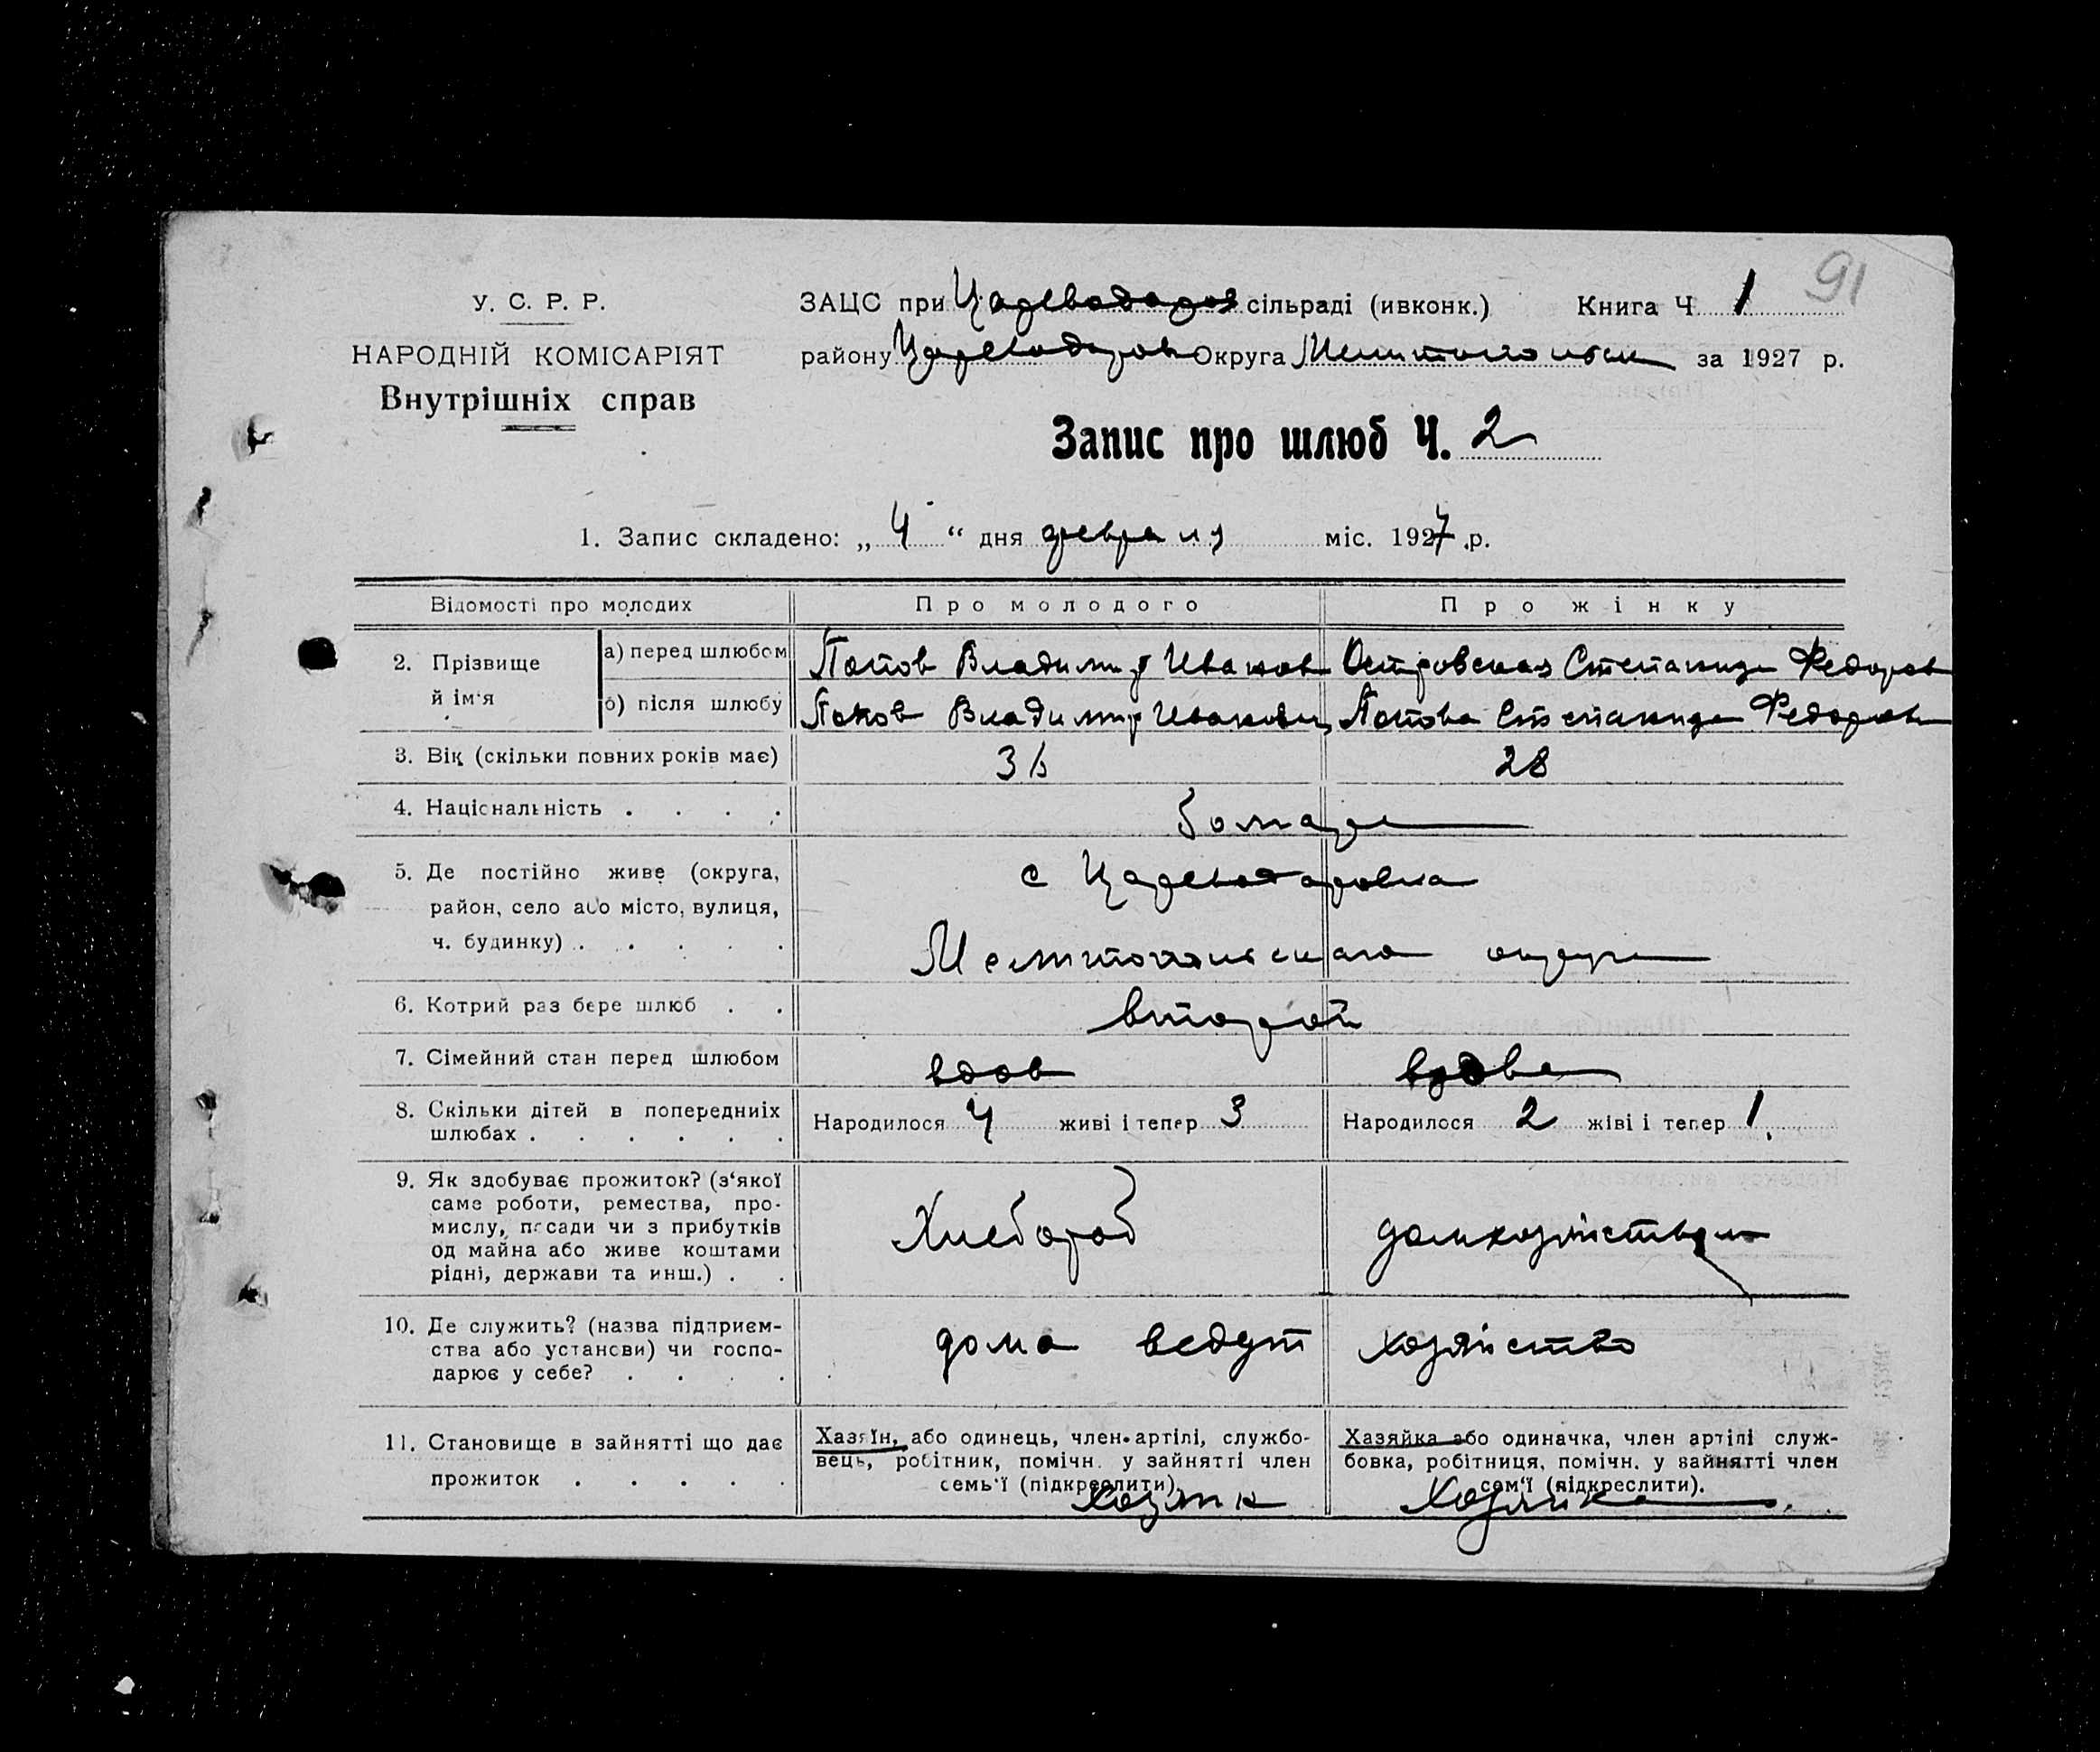 91
У. С. Р. Р.
НАРОДНІЙ КОМІСАРІЯТ
Внутрішніх справ
ЗАЦС при Цареводаров сільраді (ивконк.) Книга Ч 1
району Цареводаров Округа Мелитопольск за 1927 р.
Запис про шлюб Ч. 2
1. Запис складено: „ 4 “ дня февраля міс. 1927 р.
Відомості про молодих
Про молодого
Про жінку
2. Прізвище й ім'я
а) перед шлюбом
Попов Владимир Иванов
Островская Степанида Федоров
б) після шлюбу
Попов Владимир Иванович
Попова Степанида Федоров
3. Вік (скільки повних років має)
36
28
4. Національність . . . .
болгаре
5. Де постійно живе (округа,
район, село або місто, вулиця,
ч. будинку) . . . . .
с Цареводаровка
Мелитопольского округа
6. Котрий раз бере шлюб . .
второй
7. Сімейний стан перед шлюбом
вдов
вдова
8. Скільки дітей в попередниіх
шлюбах . . . . . .
Народилося 4 живі і тепер 3
Народилося 2 жіві і тепер 1.
9. Як здобуває прожиток? (з'якої
саме роботи, ремества, про-
мислу, посади чи з прибутків
од майна або живе коштами
рідні, держави та инш.) . .
Хлебороб
домхозяйством
10. Де служить? (назва підприєм-
ства або установи) чи госпо-
дарює у себе? . . . .
дома ведут хозяйство
11. Становище в зайнятті що дає
прожиток . . . . .
Хазяїн, або одинець, член-артілі, службо-
вець, робітник, помічн. у зайнятті член
семь'ї (підкреслити)
Хозяин
Хазяйка або одиначка, член артілі служ-
бовка, робітниця, помічн. у зайнятті член
сем'ї (підкреслити).
Хозяйка